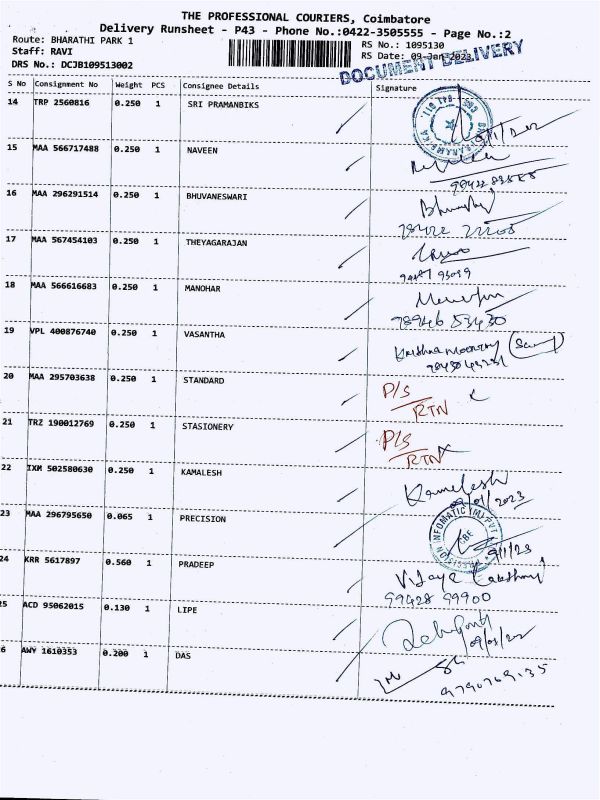 THE PROFESSIONAL COURIERS, Coimbatore
Delivery Runsheet - P43 - Phone No.:0422-3505555 - Page No.:2
Route: BHARATHI PARK 1
RS No.: 1095130
Staff: RAVI
RS Date: 09-Jan-2023
DRS No.: DCJB109513002
DOCUMENT DELIVERY
S No Consignment No Weight PCS Consignee Details Signature
14 TRP 2560816 0.250 1 SRI PRAMANBIKS
15 MAA 566717488 0.250 1 NAVEEN
16 MAA 296291514 0.250 1 BHUVANESWARI
17 MAA 567454103 0.250 1 THEYAGARAJAN
18 MAA 566616683 0.250 1 MANOHAR
19 VPL 400876740 0.250 1 VASANTHA
20 MAA 295703638 0.250 1 STANDARD P/S
RTN
21 TRZ 190012769 0.250 1 STASIONERY P/S
RTN
22 IXM 502580630 0.250 1 KAMALESH Kamalesh
09/01/2023
23 MAA 296795650 0.065 1 PRECISION CBE
24 KRR 5617897 0.560 1 PRADEEP Vijaya
99428 99900
25 ACD 95062015 0.130 1 LIPE
6 AWY 1610353 0.200 1 DAS